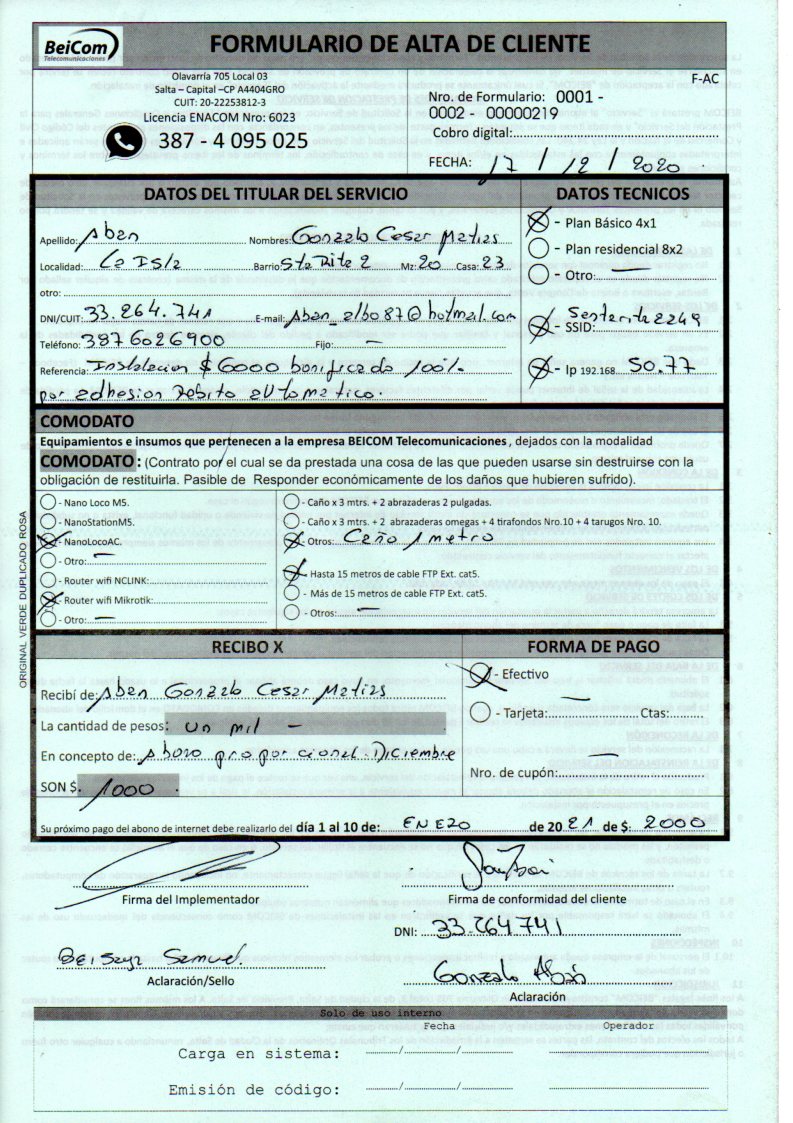 BeiCom
Telecomunicaciones
FORMULARIO DE ALTA DE CLIENTE
Olavarría 705 Local 03
Salta – Capital –CP A4404GRO
CUIT: 20-22253812-3
Licencia ENACOM Nro: 6023
387 - 4 095 025
F-AC
Nro. de Formulario: 0001 -
0002 - 00000219
Cobro digital:
FECHA: 17 / 12 / 2020
DATOS DEL TITULAR DEL SERVICIO
Apellido: Aban Nombres: Gonzalo Cesar Matias
Localidad: La Isla Barrio: Sta Rita 2 Mz: 20 Casa: 23
otro:
DNI/CUIT: 33.264.741 E-mail: Aban_albo87@hotmal.com
Teléfono: 3876026900 Fijo: —
Referencia: Instalacion $ 6000 bonificado 100%
por adhesion Debito automatico.
DATOS TECNICOS
- Plan Básico 4x1
- Plan residencial 8x2
- Otro: —
- SSID: Santarita2249
- Ip 192.168. 50.77
COMODATO
Equipamientos e insumos que pertenecen a la empresa BEICOM Telecomunicaciones, dejados con la modalidad
COMODATO: (Contrato por el cual se da prestada una cosa de las que pueden usarse sin destruirse con la
obligación de restituirla. Pasible de Responder económicamente de los daños que hubieren sufrido).
- Nano Loco M5.
- NanoStationM5.
- NanoLocoAC.
- Otro: —
- Router wifi NCLINK:
- Router wifi Mikrotik:
- Otro: —
- Caño x 3 mtrs. + 2 abrazaderas 2 pulgadas.
- Caño x 3 mtrs. + 2 abrazaderas omegas + 4 tirafondos Nro.10 + 4 tarugos Nro. 10.
- Otros: Caño 1 metro
- Hasta 15 metros de cable FTP Ext. cat5.
- Más de 15 metros de cable FTP Ext. cat5.
- Otros: —
ORIGINAL VERDE DUPLICADO ROSA
RECIBO X
Recibí de: Aban Gonzalo Cesar Matias
La cantidad de pesos: Un mil —
En concepto de: Abono proporcional Diciembre
SON $. 1000 .
FORMA DE PAGO
- Efectivo
- Tarjeta: — Ctas:
Nro. de cupón: —
Su próximo pago del abono de internet debe realizarlo del día 1 al 10 de: ENERO de 20 21 de $: 2000
Firma del Implementador
Firma de conformidad del cliente
DNI: 33.264741
Beisaga Samuel.
Aclaración/Sello
Gonzalo Abán
Aclaración
Solo de uso interno
Fecha Operador
Carga en sistema: / /
Emisión de código: / /